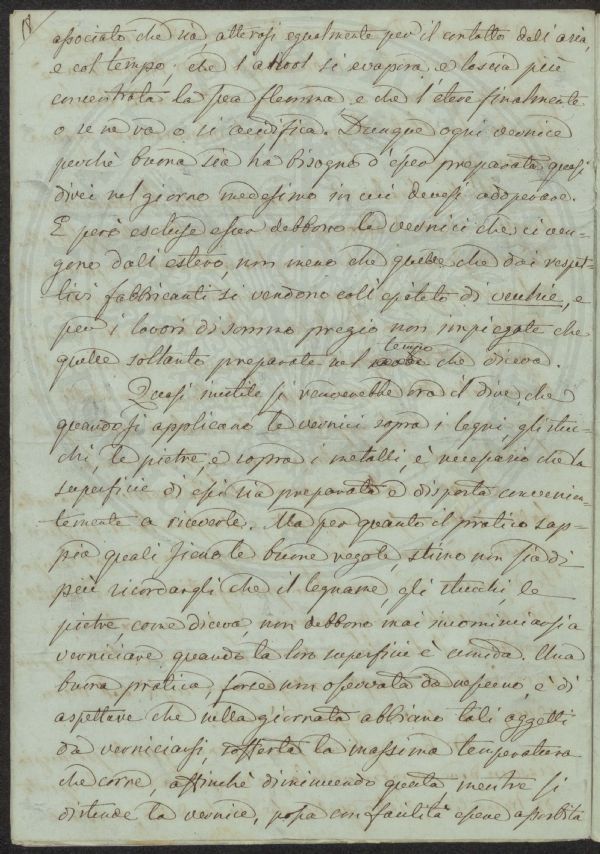 18
associato che sia, alterasi egualmente per il contatto dell'aria,
e col tempo; che l'alcool si evapora e lascia più
concentrata la sua flemma e che l'etere finalmente
o se ne va o si acidifica. Dunque ogni vernice
perchè buona sia ha bisogno d'esser preparata quasi
direi nel giorno medesimo in cui devesi adoperare.
E però escluse esser debbono le vernici che ci ven-
gono dall'estero, non meno che quelle che dai rispet-
tivi fabbricanti si vendono coll'epiteto di vecchie, e
per i lavori di sommo pregio non impiegate che
quelle soltanto preparate nel tempo che diceva.
Quasi inutile si renderebbe ora il dire, che
quando si applicano le vernici sopra i legni, gli stuc-
chi, le pietre, e sopra i metalli, è necessario che la
superficie di essi sia preparata e disposta convenien-
temente a riceverle. Ma per quanto il pratico sap-
pia quali sieno le buone regole, stimo non sia di
più ricordargli che il legname, gli stucchi, le
pietre, come diceva, non debbono mai incominciarsi a
verniciare quando la loro superficie è umida. Una
buona pratica, forse non osservata da nessuno, è di
aspettare che nella giornata abbiano tali oggetti
da verniciarsi, sofferta la massima temperatura
che corre, affinchè diminuendo questa mentre si
distende la vernice, possa con facilità essere assorbita